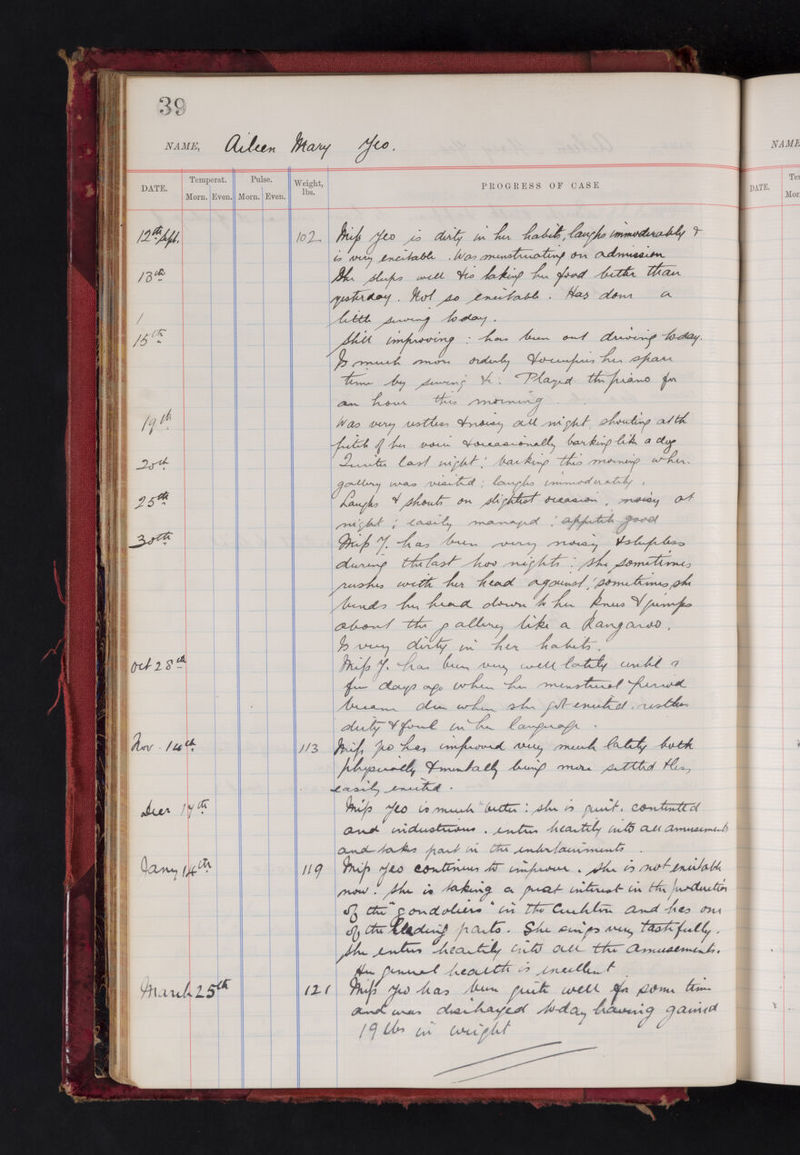 39
NAME, Aileen Mary Yeo.
NAME
DATE.
Temperat.
Pulse.
Weight, lbs.
PROGRESS OF CASE
Morn. Even. Morn. Even.
DATE.
12th Sept. 102 Miss Yeo is dirty in her habits, laughs immoderately &
is very excitable. Was menstruating on admission
13th She sleeps well & is taking her food better than
yesterday. Not so excitable. Has done a
little sewing today.
15th Still improving: has been out driving to-day.
Is much more orderly & occupies her spare
time by sewing &c: Played the piano for
an hour this morning
19th Was very restless & noisy all night, shouting at th
pitch of her voice & occasionally barking like a dog
20th Quieter last night: barking this morning when
gallery was visited: laughs immoderately.
25th Laughs & shouts on slightest occasion, noisy at
night; easily managed: appetite good
30th Miss Y. has been very noisy & sleepless
during the last two nights: she sometimes
rushes with her head against, sometimes she
bends her head down to her knees & jumps
about the gallery like a Kangaroo.
Is very dirty in her habits.
Oct 28th Miss Y. has been very well lately until a
few days ago when her menstrual period
became due when she got excited, restless
dirty & foul in her language.
Nov. 14th 113 Miss Yeo has improved very much lately both
physically & mentally being more settled & less
easily excited.
Decr 17th Miss Yeo is much better: she is quiet, contented
and industrious. enters heartily into all amusements
and takes part in the entertainments.
Jany 14th 119 Miss Yeo continues to improve. She is not excitable
now. She is taking a great interest in the production
of the "Gondoliers" in the and has one
of the leading parts. She sings very tastefully.
She enters heartily into all the amusements.
Her general health is excellent
March 25th 121 Miss Yeo has been quite well for some time
and was discharged today having gained
19 lbs in weight